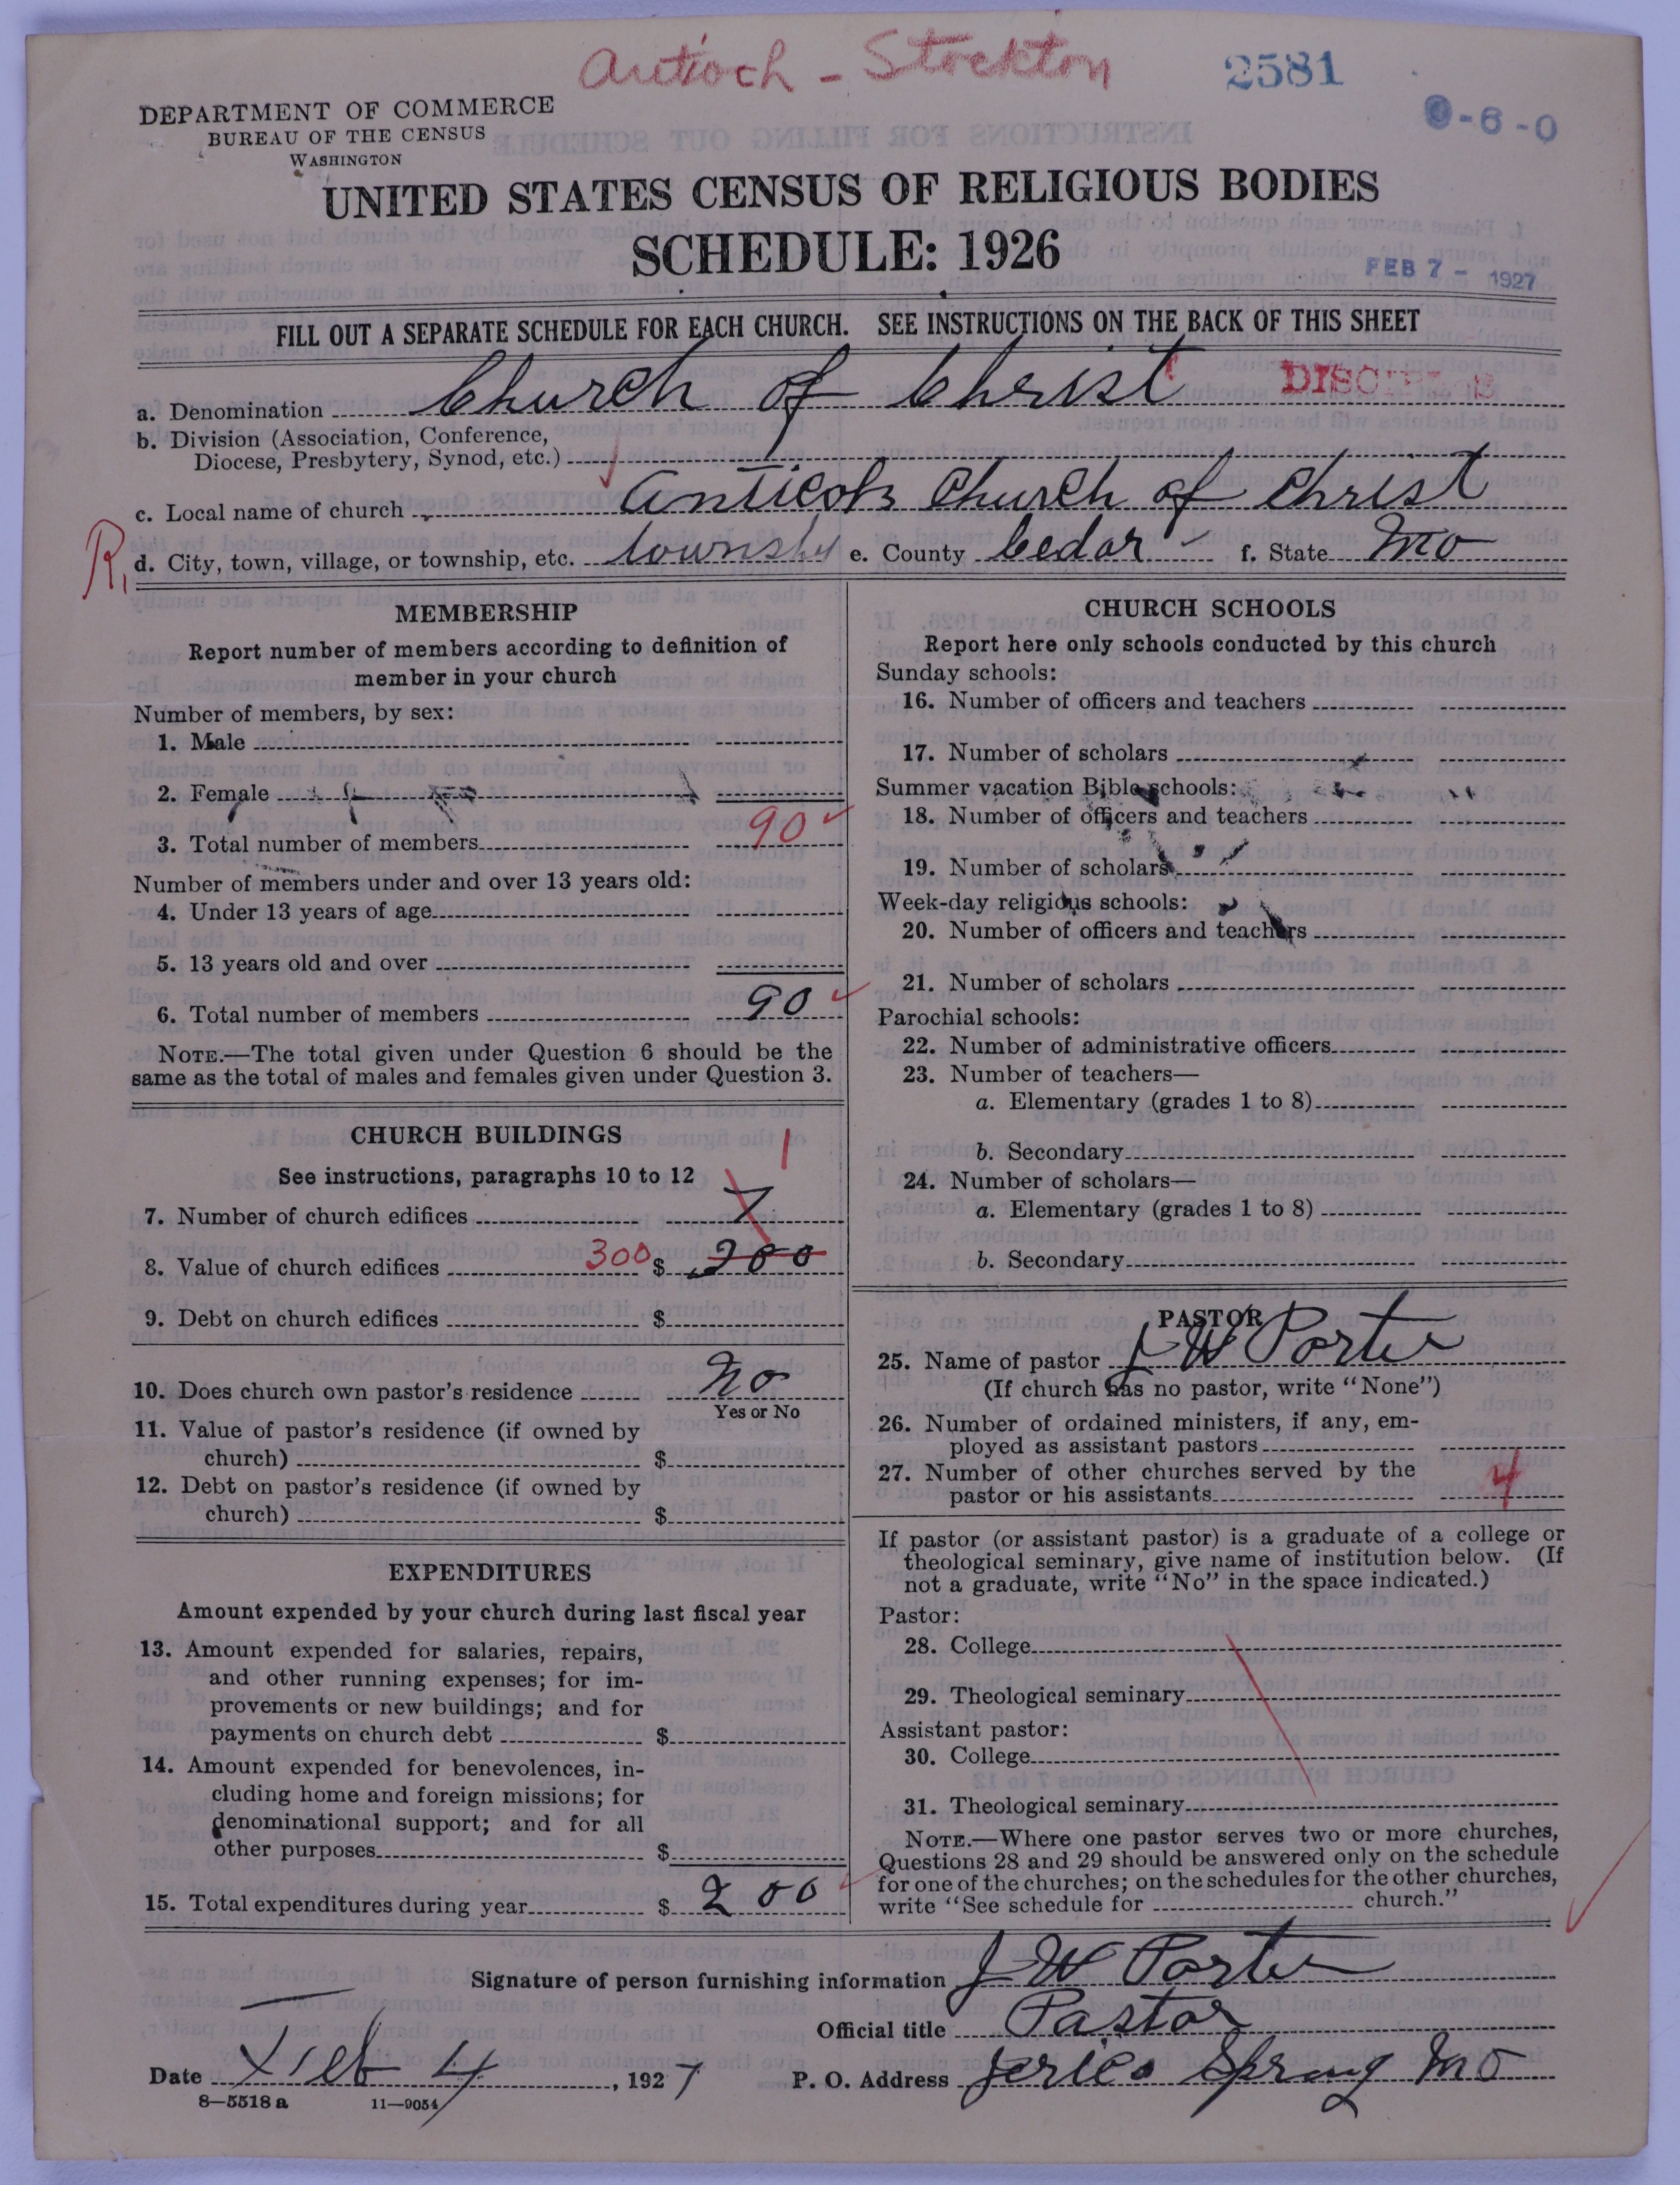 Antioch - Stockton
2581
0-6-0
DEPARTMENT OF COMMERCE
BUREAU OF THE CENSUS
WASHINGTON
UNITED STATES CENSUS OF RELIGIOUS BODIES
SCHEDULE: 1926
FEB 7 - 1927
FILL OUT A SEPARATE SCHEDULE FOR EACH CHURCH. SEE INSTRUCTIONS ON THE BACK OF THIS SHEET
a. Denomination Church of Christ DISCIPLES
b. Division (Association, Conference,
Diocese, Presbytery, Synod, etc.)
c. Local name of church Anticoh Church of Christ
R, d. City, town, village, or township, etc. e. County Cedar f. State Mo
MEMBERSHIP
Report number of members according to definition of
member in your church
Number of members, by sex:
1. Male
2. Female
3. Total number of members 90
Number of members under and over 13 years old:
4. Under 13 years of age
5. 13 years old and over
6. Total number of members 90
NOTE.—The total given under Question 6 should be the
same as the total of males and females given under Question 3.
CHURCH BUILDINGS
See instructions, paragraphs 10 to 12 1
7. Number of church edifices
8. Value of church edifices 300 $ 300
9. Debt on church edifices $
10. Does church own pastor's residence No
Yes or No
11. Value of pastor's residence (if owned by
church) $
12. Debt on pastor's residence (if owned by
church) $
EXPENDITURES
Amount expended by your church during last fiscal year
13. Amount expended for salaries, repairs,
and other running expenses; for im-
provements or new buildings; and for
payments on church debt $
14. Amount expended for benevolences, in-
cluding home and foreign missions; for
denominational support; and for all
other purposes $
15. Total expenditures during year $ 200
CHURCH SCHOOLS
Report here only schools conducted by this church
Sunday schools:
16. Number of officers and teachers
17. Number of scholars
Summer vacation Bible schools:
18. Number of officers and teachers
19. Number of scholars
Week-day religious schools:
20. Number of officers and teachers
21. Number of scholars
Parochial schools:
22. Number of administrative officers
23. Number of teachers—
a. Elementary (grades 1 to 8)
b. Secondary
24. Number of scholars—
a. Elementary (grades 1 to 8)
b. Secondary
PASTOR
25. Name of pastor J W Porter
(If church has no pastor, write "None")
26. Number of ordained ministers, if any, em-
ployed as assistant pastors
27. Number of other churches served by the
pastor or his assistants 4
If pastor (or assistant pastor) is a graduate of a college or
theological seminary, give name of institution below. (If
not a graduate, write "No" in the space indicated.)
Pastor:
28. College
29. Theological seminary
Assistant pastor:
30. College
31. Theological seminary
NOTE.—Where one pastor serves two or more churches,
Questions 28 and 29 should be answered only on the schedule
for one of the churches; on the schedules for the other churches,
write "See schedule for church."
Signature of person furnishing information J W Porter
Official title Pastor
Date Feb 4, 1927 P. O. Address Jerico Spring Mo
8—5518 a 11—9054